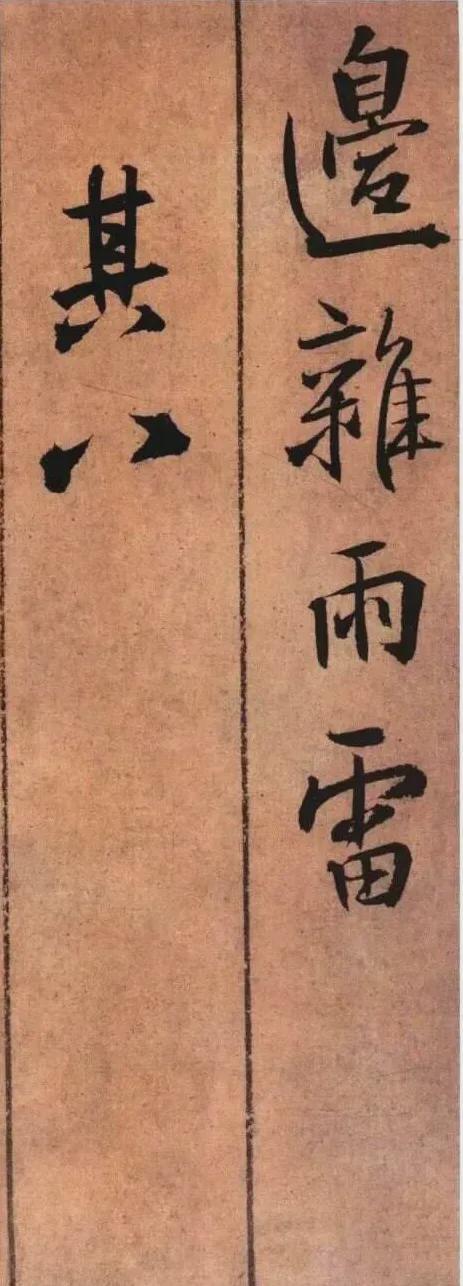 邊雜雨雷
其八